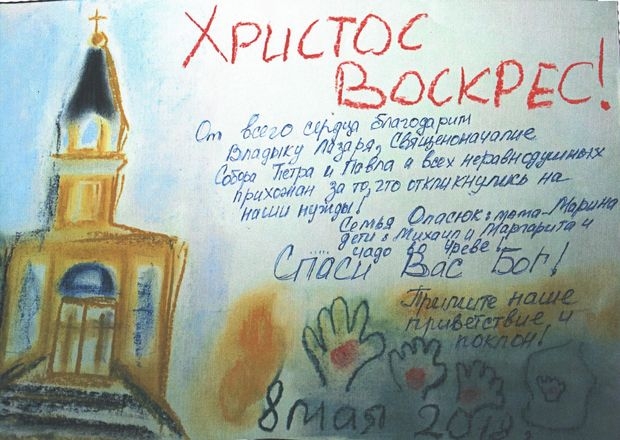 Христос
Воскрес!
От всего сердца благодарим
Владыку Лазаря, Священоначалие
Собора Петра и Павла и всех неравнодушных
прихожан за то, что откликнулись на
наши нужды!
Семья Опасюк: мама-Марина
дети: Михаил и Маргарита и
чадо во чреве!
Спаси Вас Бог!
Примите наше
приветствие и
поклон!
8 мая